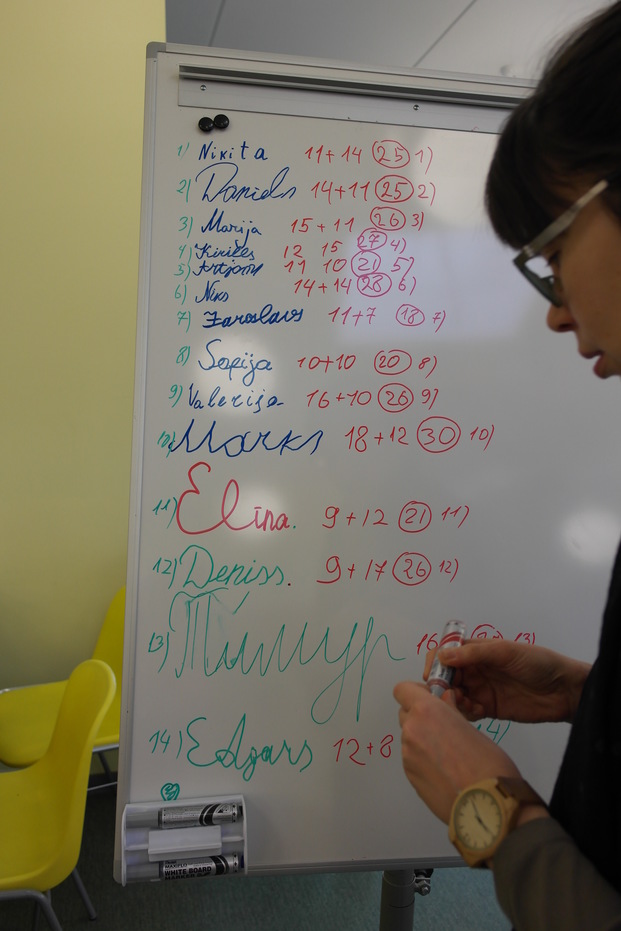 1) Nikita 11+14 25 1)
2) Daniels 14+11 25 2)
3) Marija 15+11 26 3)
4) Kirills 12 15 27 4)
5) Artjom 11 10 21 5)
6) Niks 14+14 28 6)
7) Jaroslavs 11+7 18 7)
8) Sofija 10+10 20 8)
9) Valerija 16+10 26 9)
10) Marks 18+12 30 10)
11) Elīna. 9+12 21 11)
12) Deniss. 9+17 26 12)
13) Тимур 16 13)
14) Edgars 12+8 14)
WHITE BOARD
MARKER